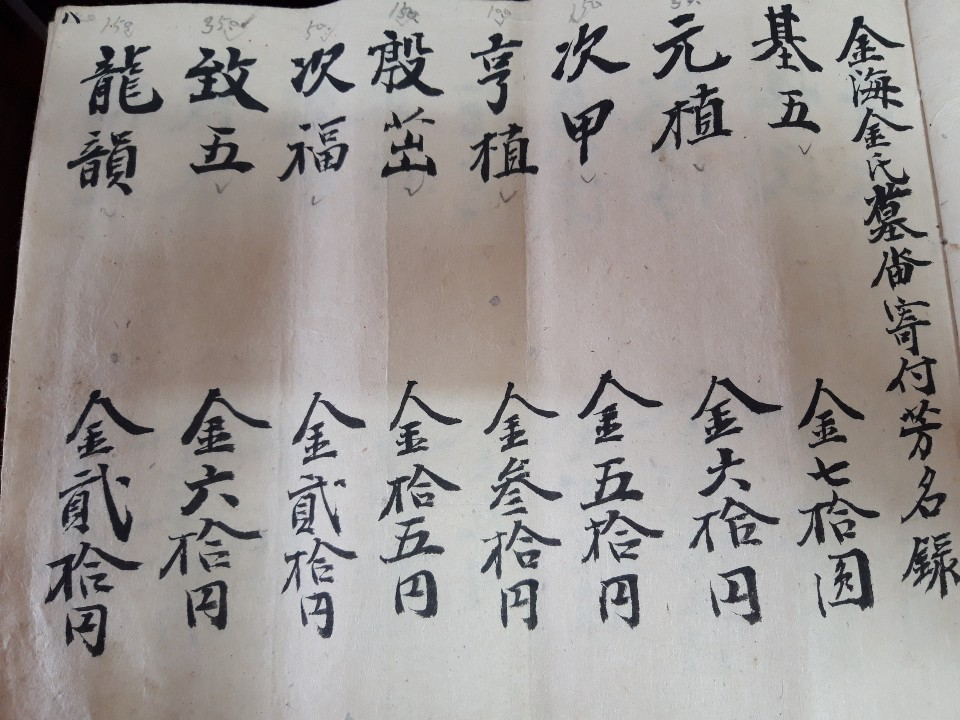 金海金氏墓畓寄付芳名錄
基五 金七拾圓
元植 金六拾円
次甲 金五拾円
亨植 金參拾円
殷茁 金拾五円
次福 金貳拾円
致五 金六拾円
龍韻 金貳拾円